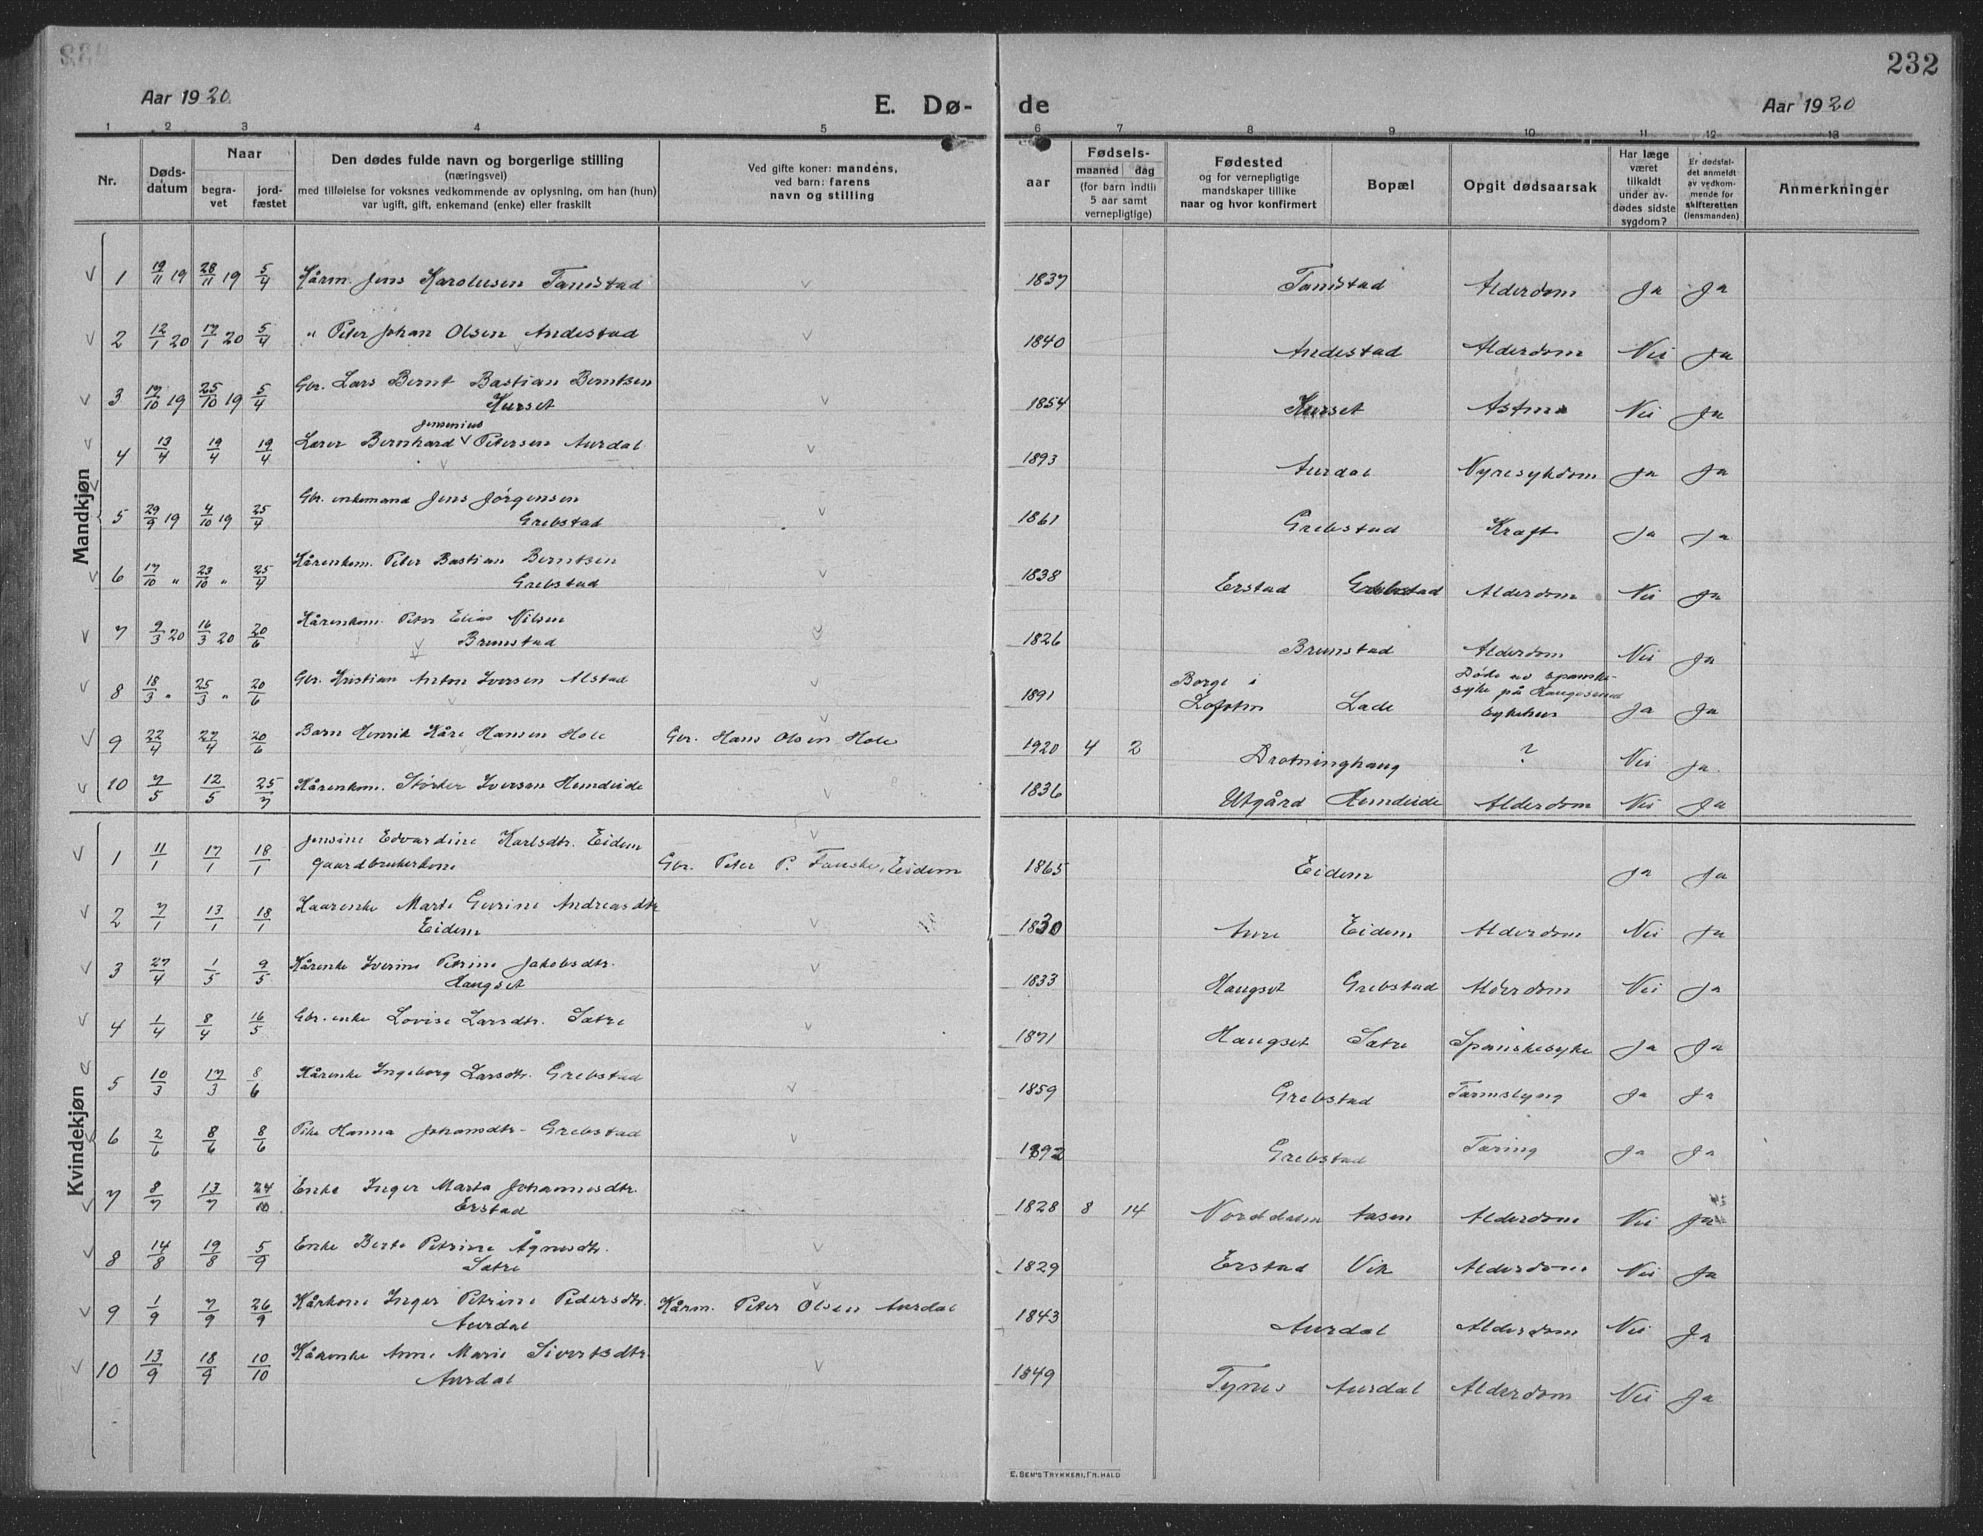 232
Aar 1920
E. Dø-
de
Aar 1920
1 2 3 4 5 6 7 8 9 10 11 12 13
Nr.
Døds-
datum
Naar
begra-
vet
jord-
fæstet
Den dødes fulde navn og borgerlige stilling
(næringsvei)
med tilføielse for voksnes vedkommende av oplysning, om han (hun)
var ugift, gift, enkemand (enke) eller fraskilt
Ved gifte koner: mandens,
ved barn: farens
navn og stilling
aar
Fødsels-
maaned dag
(for barn indtil
5 aar samt
vernepligtige)
Fødested
og for vernepligtige
mandskaper tillike
naar og hvor konfirmert
Bopæl
Opgit dødsaarsak
Har læge
været
tilkaldt
under av-
dødes sidste
sygdom?
Er dødsfal-
det anmeldt
av vedkom-
mende for
skifteretten
(lensmanden)
Anmerkninger
Mandkjøn
1 19/11 19 28/11 19 5/4 Kårm. Jens Karolusen Tandstad 1837 Tandstad Alderdom Ja Ja
2 12/1 20 17/1 20 5/4 " Peter Johan Olsen Andestad 1840 Andestad Alderdom Nei Ja
3 17/10 19 25/10 19 5/4 Gbr. Lars Bernt Bastian Berntsen
Kurset 1854 Kurset Astma Nei Ja
Jensenius
4 13/4 19/4 19/4 Lærer Bernhard Petersen Aurdal 1893 Aurdal Nyresykdom Ja Ja
5 29/9 19 4/10 19 25/4 Gbr. enkemand Jens Jørgensen
Grebstad 1861 Grebstad Kræft Ja Ja
6 17/10 " 23/10 " 25/4 Kårenkem. Peter Bastian Berntsen
Grebstad 1838 Erstad Grebstad Alderdom Nei Ja
7 9/3 20 16/3 20 20/6 Kårenkem. Peter Elias Nilsen
Brunstad 1826 Brunstad Alderdom Nei Ja
8 18/3 " 25/3 " 20/6 Gbr. Kristian Anton Iversen Alstad 1891 Borge i
Lofoten Lade Døde av spanske-
syke på Haugesund
sykehus Ja Ja
9 22/4 27/4 20/6 Barn Henrik Kåre Hansen Hole Gbr. Hans Olsen Hole 1920 4 2 Drotninghaug ? Nei Ja
10 7/5 12/5 25/7 Kårenkem. Størker Iversen Hundeide 1836 Utgård Hundeide Alderdom Nei Ja
Kvindekjøn
1 11/1 17/1 18/1 Jensine Edvardine Karlsdtr. Eidem
gaardbrukerkone Gbr. Peter P. Fauske, Eidem 1865 Eidem Ja Ja
2 7/1 13/1 18/1 Kaarenke Marte Gurine Andreasdtr
Eidem 1830 Aure Eidem Alderdom Nei Ja
3 27/4 1/5 9/5 Kårenke Iverine Petrine Jakobsdtr.
Haugset 1833 Haugset Grebstad Alderdom Nei Ja
4 1/4 8/4 16/5 Gbr. enke Lovise Larsdtr. Sætre 1871 Haugset Sætre Spanskesyke Ja Ja
5 10/3 17/3 8/6 Kårenke Ingeborg Larsdtr. Grebstad 1859 Grebstad Tarmslyng Ja Ja
6 2/6 8/6 8/6 Pike Hanna Johansdtr. Grebstad 1892 Grebstad Tæring Ja Ja
7 8/7 13/7 24/10 Enke Inger Marta Johannesdtr.
Erstad 1828 8 14 Norddalen Aasen Alderdom Nei Ja
8 14/8 19/8 5/9 Enke Berte Petrine Ågnesdtr.
Sætre 1829 Erstad Vik Alderdom Nei Ja
9 1/9 7/9 26/9 Kårkone Inger Petrine Pedersdtr.
Aurdal Kårm. Peter Olsen Aurdal 1843 Aurdal Alderdom Nei Ja
10 13/9 18/9 10/10 Kårenke Anne Marie Sivertsdtr.
Aurdal 1849 Tynes Aurdal Alderdom Nei Ja
E. SEM'S TRYKKERI, FR.HALD